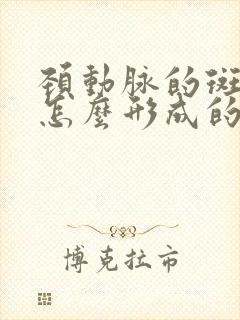 頸動脉的斑
怎麼形成的
博克拉市